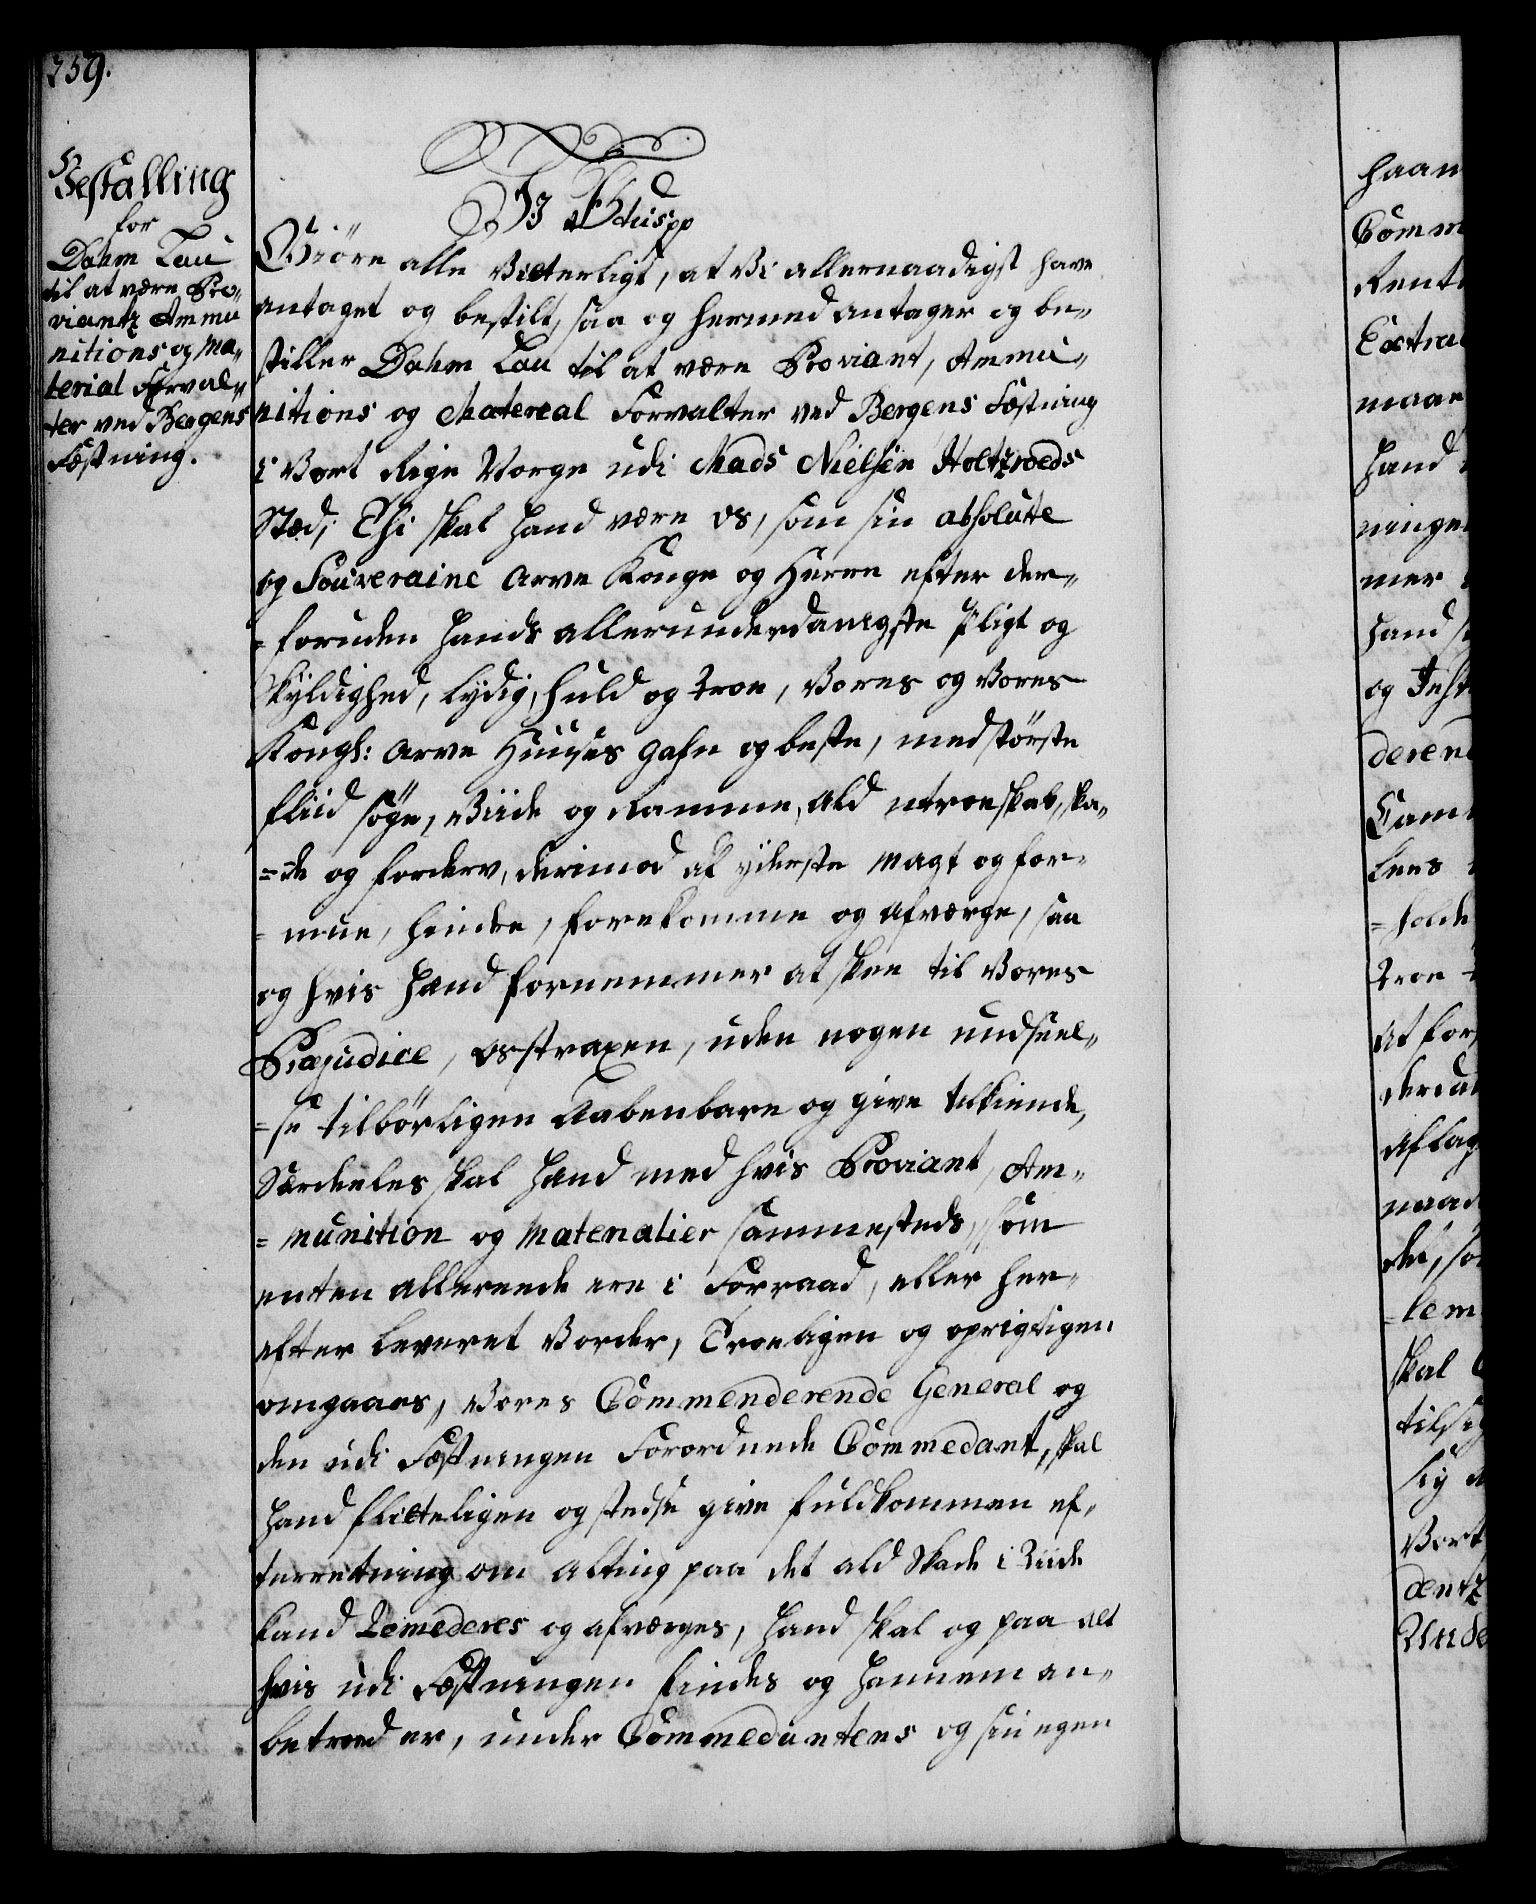 259.
Bestalling
for
Dahm Lau
til at være Pro-
viantz Ammu
nitions og Ma-
terial Forval-
ter ved Bergens
Fæstning.
Giöre alle Vitterligt, at Vi allernaadigst have
antaget og bestilt, saa og hermed antager og be-
stiller Dahm Lau til at være Proviant, Ammu-
nitions og Matereal Forvalter ved Bergens Fæstning
i Vort Rige Norge udi Mads Nielsen Holtzroeds
Stæd; Thi skal hand være os, som sin absolutte
og Souveraine Arve Konge og Herre efter der-
=foruden hands allerunderdanigste Pligt og
Skyldighed, lydig, huld og troe, Vores og Vores
Kongl: Arve Huuses gafn og beste, med störste
fliid söge, Viide og Ramme, ald utroeskab, ska-
=de og forderv, derimod af yderste Magt og for-
=mue, hindre, forekomme og afværge, saa
og hvis hand fornemmer at skee til Vores
Præjudice, os straxen, uden nogen undseel-
=se tilbörligen Aabenbare og give tilkiende,
Særdeeles skal hand med hvis Proviant, Am-
=munition og Materialier sammesteds, som
enten allereede ere i Forraad, eller her-
efter leveret Vorder, Troeligen og oprigtigen
omgaaes, Vores Commenderende General og
den udi Fæstningen Forordnede Commedant, skal
hand flitteligen og stedse give fuldkommen ef-
terretning om alting paa det ald Skade i Tiide
kand Remederes og afværges, hand skal og paa alt
hvis udi Fæstningen findes og hannem an-
betroed er, under Commedantens og sin egen
haan
Comm
Rent
Extra
maan
hand
ninge
mer
hand s
og Inst
deren
Cam
=holde
troe
At for
derda
Aflag
naad
=lem
skal
sig
Vort
dentz
Unde